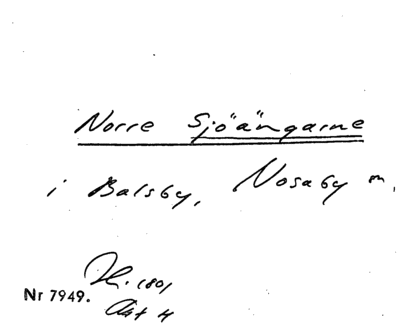 Norre Sjöängarne
i Balsby, Nosaby m,
H. 1801
Akt H
Nr 7949.